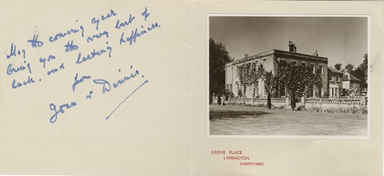 May the coming year
bring you the very best of
luck, and lasting happiness.
from
Joan & Dennis.
GROVE PLACE
LYMINGTON
HAMPSHIRE